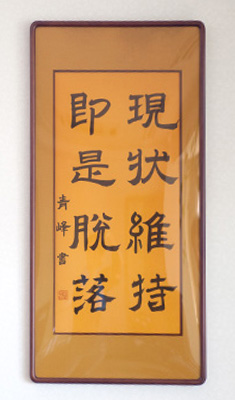 現状維持
即是脱落
青峰書